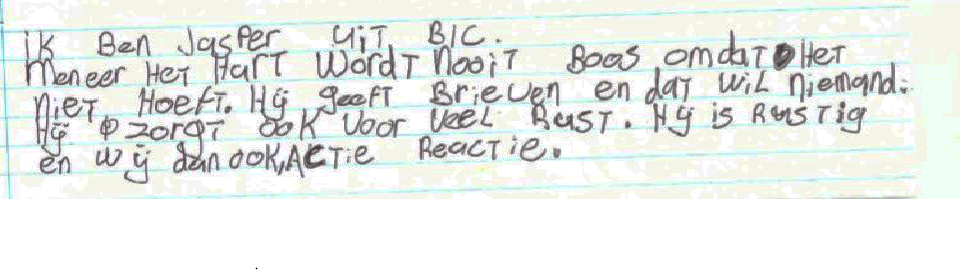 ik Ben Jasper uiT B1C.
meneer HeT HarT WordT NooiT Boos omdaT HeT
NieT HoefT. Hij geefT Brieven en daT wiL Niemand.
Hij zorgT ook Voor VeeL RusT. Hij is RusTig
en wij dan ook, AcTie ReacTie.